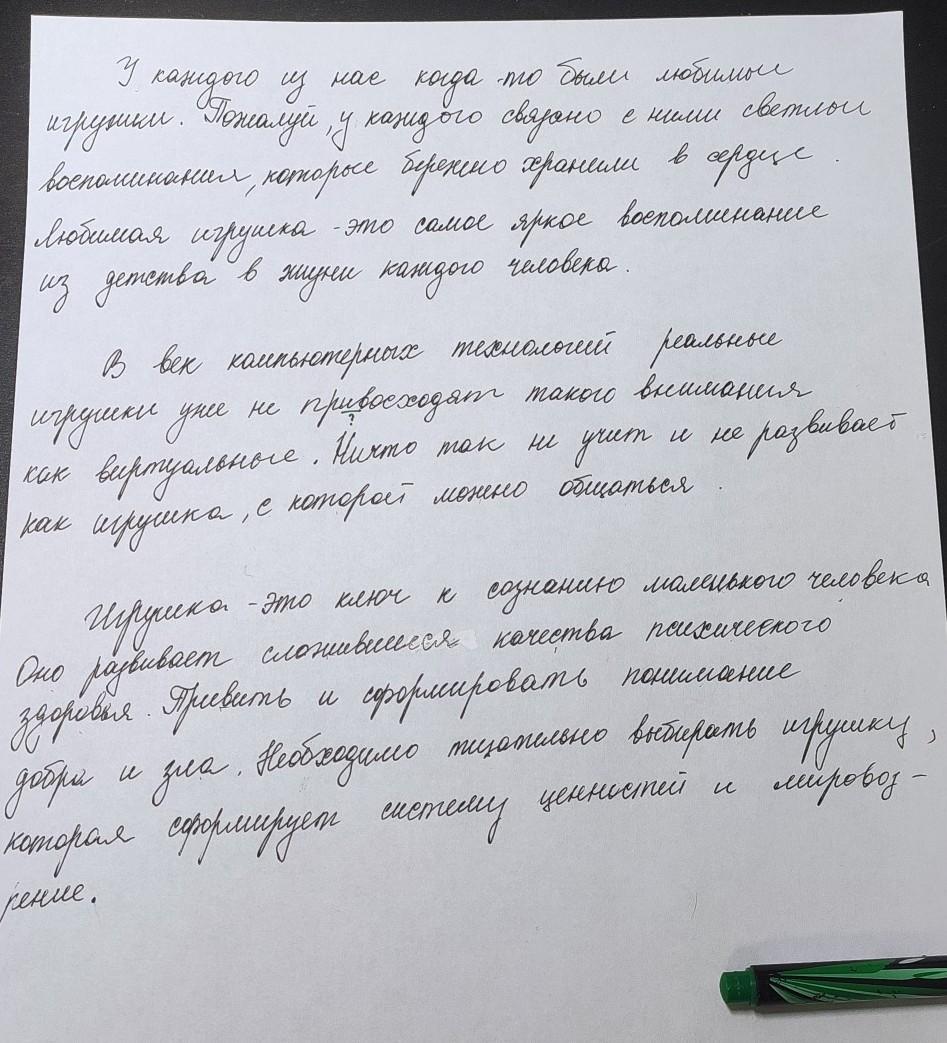 У каждого из нас когда-то были любимые
игрушки. Пожалуй, у каждого связано с ними светлые
воспоминания, которые бережно хранили в сердце.
Любимая игрушка - это самое яркое воспоминание
из детства в жизни каждого человека.
В век компьютерных технологий реальные
игрушки уже не привосходят такого внимания
?
как виртуальные. Ничто так не учит и не развивает
как игрушка, с которой можно общаться.
Игрушка - это ключ к сознанию маленького человека
Оно развивает сложившиеся качества психического
здоровья. Привить и сформировать понимание
добра и зла. Необходимо тщательно выбирать игрушку,
которая сформирует систему ценностей и мировоз-
рение.